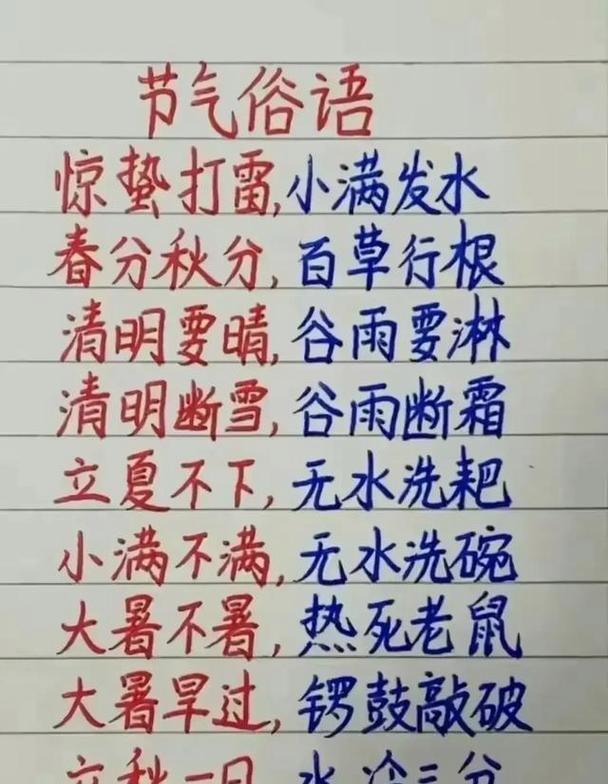 节气俗语
惊蛰打雷,小满发水
春分秋分,百草行根
清明要晴,谷雨要淋
清明断雪,谷雨断霜
立夏不下,无水洗耙
小满不满,无水洗碗
大暑不暑,热死老鼠
大暑早过,锣鼓敲破
立秋一日,水冷三分